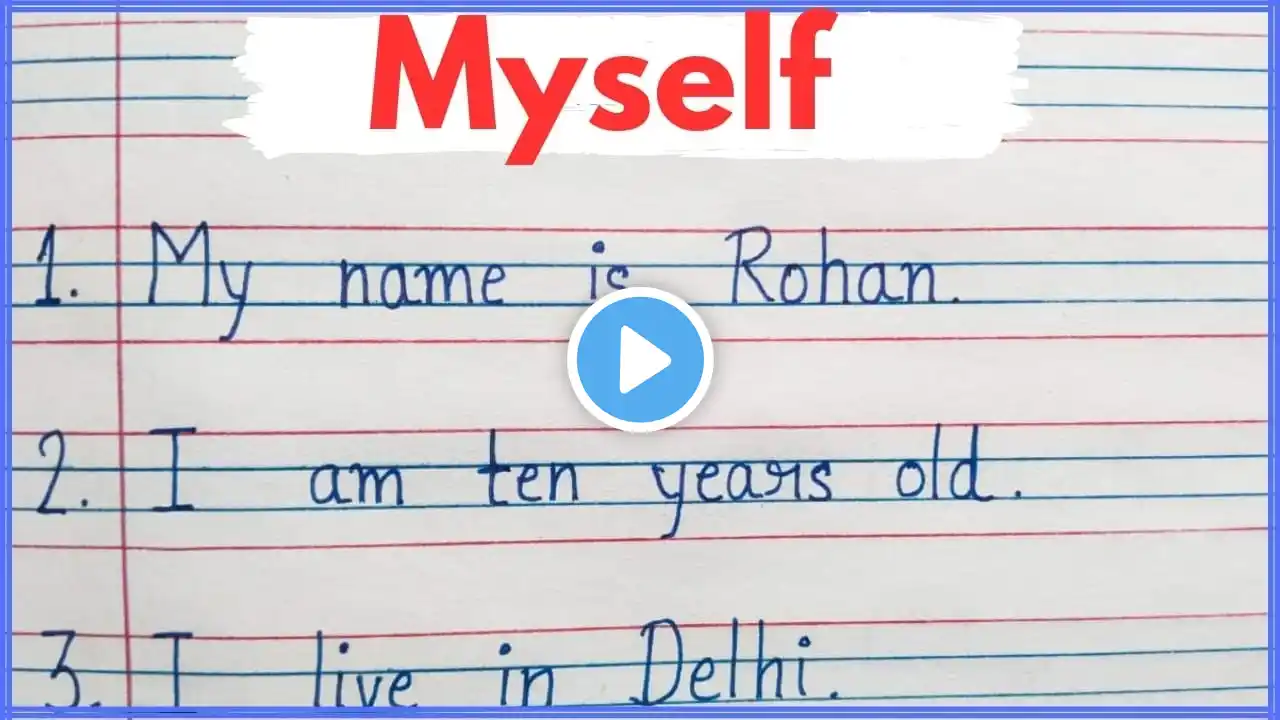 Myself
1. My name is Rohan.
2. I am ten years old.
3. I live in Delhi.